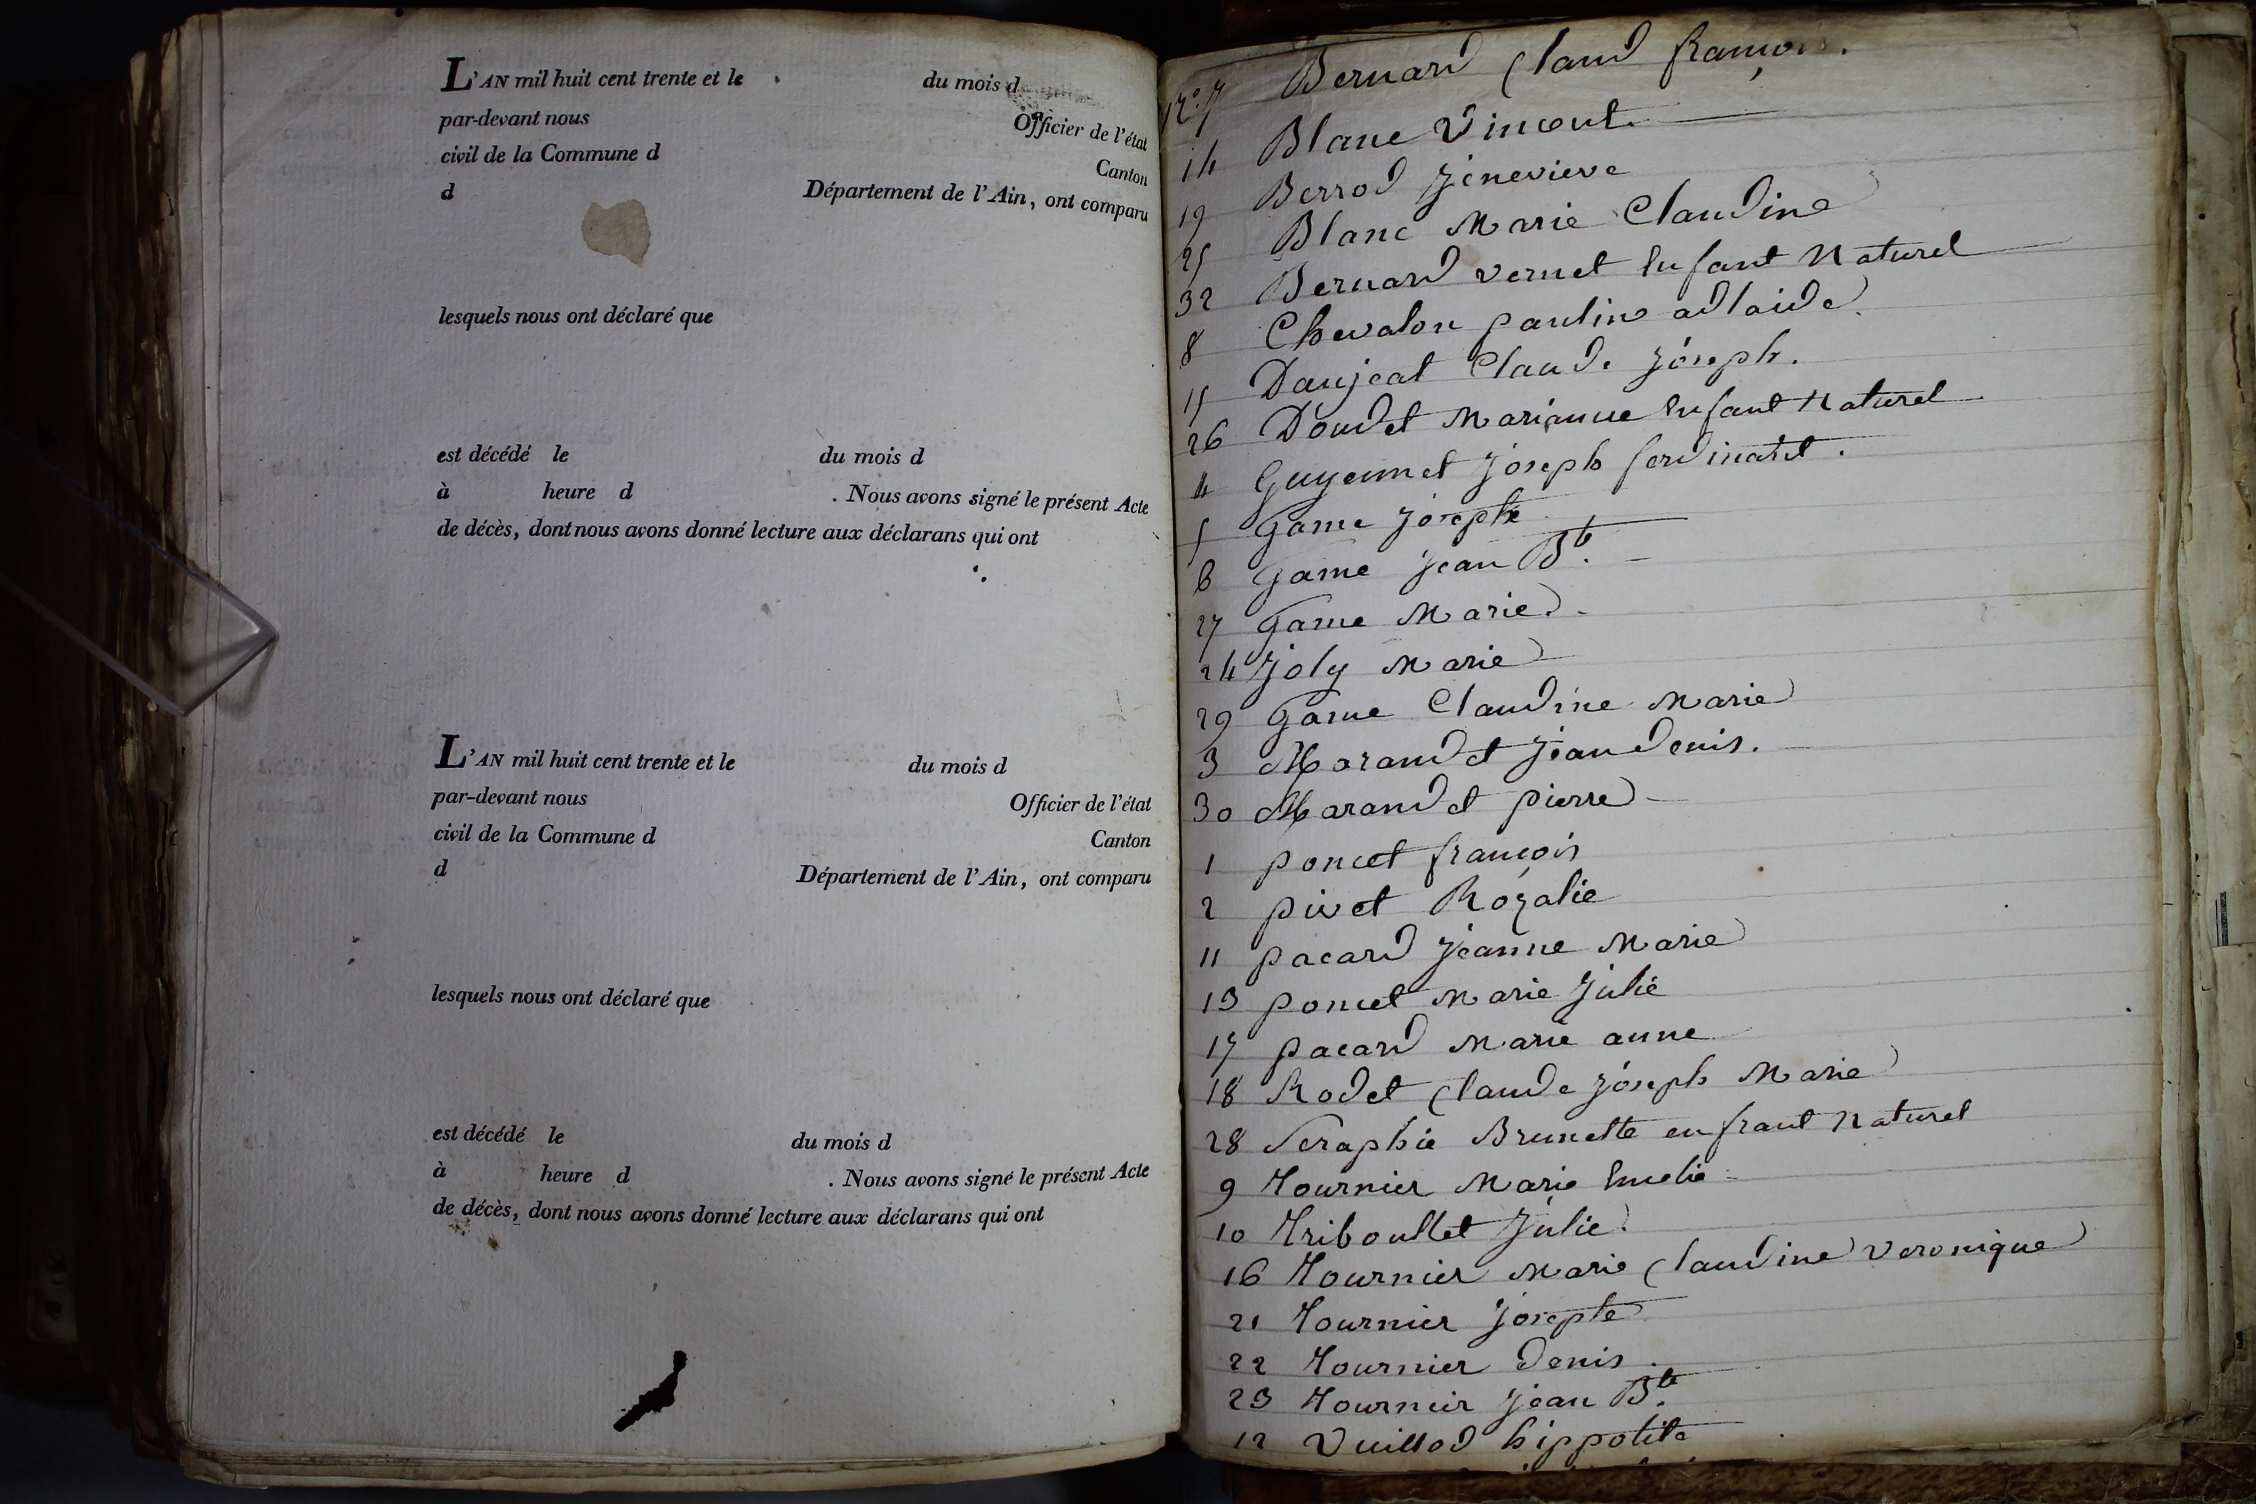 L'AN mil huit cent trente et le du mois d
par-devant nous Officier de l'état
civil de la Commune d Canton
d Département de l'Ain, ont comparu
lesquels nous ont déclaré que
est décédé le du mois d
à heure d . Nous avons signé le présent Acte
de décès, dont nous avons donné lecture aux déclarans qui ont
L'AN mil huit cent trente et le du mois d
par-devant nous Officier de l'état
civil de la Commune d Canton
d Département de l'Ain, ont comparu
lesquels nous ont déclaré que
est décédé le du mois d
à heure d . Nous avons signé le présent Acte
de décès, dont nous avons donné lecture aux déclarans qui ont
N.° 7 Bernard Claud françois.
14 Blanc Vincent.
19 Berrod jéneviève
25 Blanc Marie Claudine
32 Bernard vernet Enfant Naturel
8 Chevalon pauline adlaide.
15 Daujeat Claude jóseph.
26 Doudet Marianne Enfant Naturel
4 Guyennet joseph ferdinand.
5 Game josephe
6 Game jean Bte.
27 Game Marie.
24 Joly Marie
29 Game Claudine Marie
3 Morandet jean denis.
30 Marandet pierre
1 poncet françois
2 pivet Rozalie
11 pacard jeanne Marie
13 poncet Marie julie
17 pacard Marie anne
18 Rodet Claude jóseph Marie
28 Seraphie Brunette enfrant Naturel
9 Tournier Marie Emelie
10 Triboullet julie
16 Tournier Marie Claudine veronique
21 Tournier josephe
22 Tournier denis.
23 Tournier jean Bte.
12 Vuillod hippolite